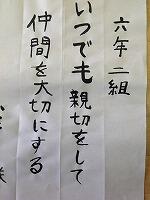 六年二組
いつでも親切をして
仲間を大切にする